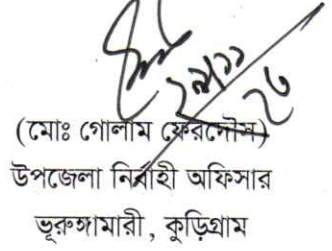 ২৯/১১/২৩
(মোঃ গোলাম ফেরদৌস)
উপজেলা নির্বাহী অফিসার
ভূরুঙ্গামারী , কুড়িগ্রাম